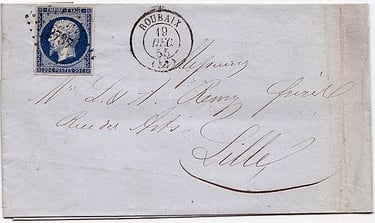 EMPIRE FRANC
20c POSTES 20c
ROUBAIX
19
DEC.
55
(57)
Messieurs
L & A
Rue des Arts
Lille